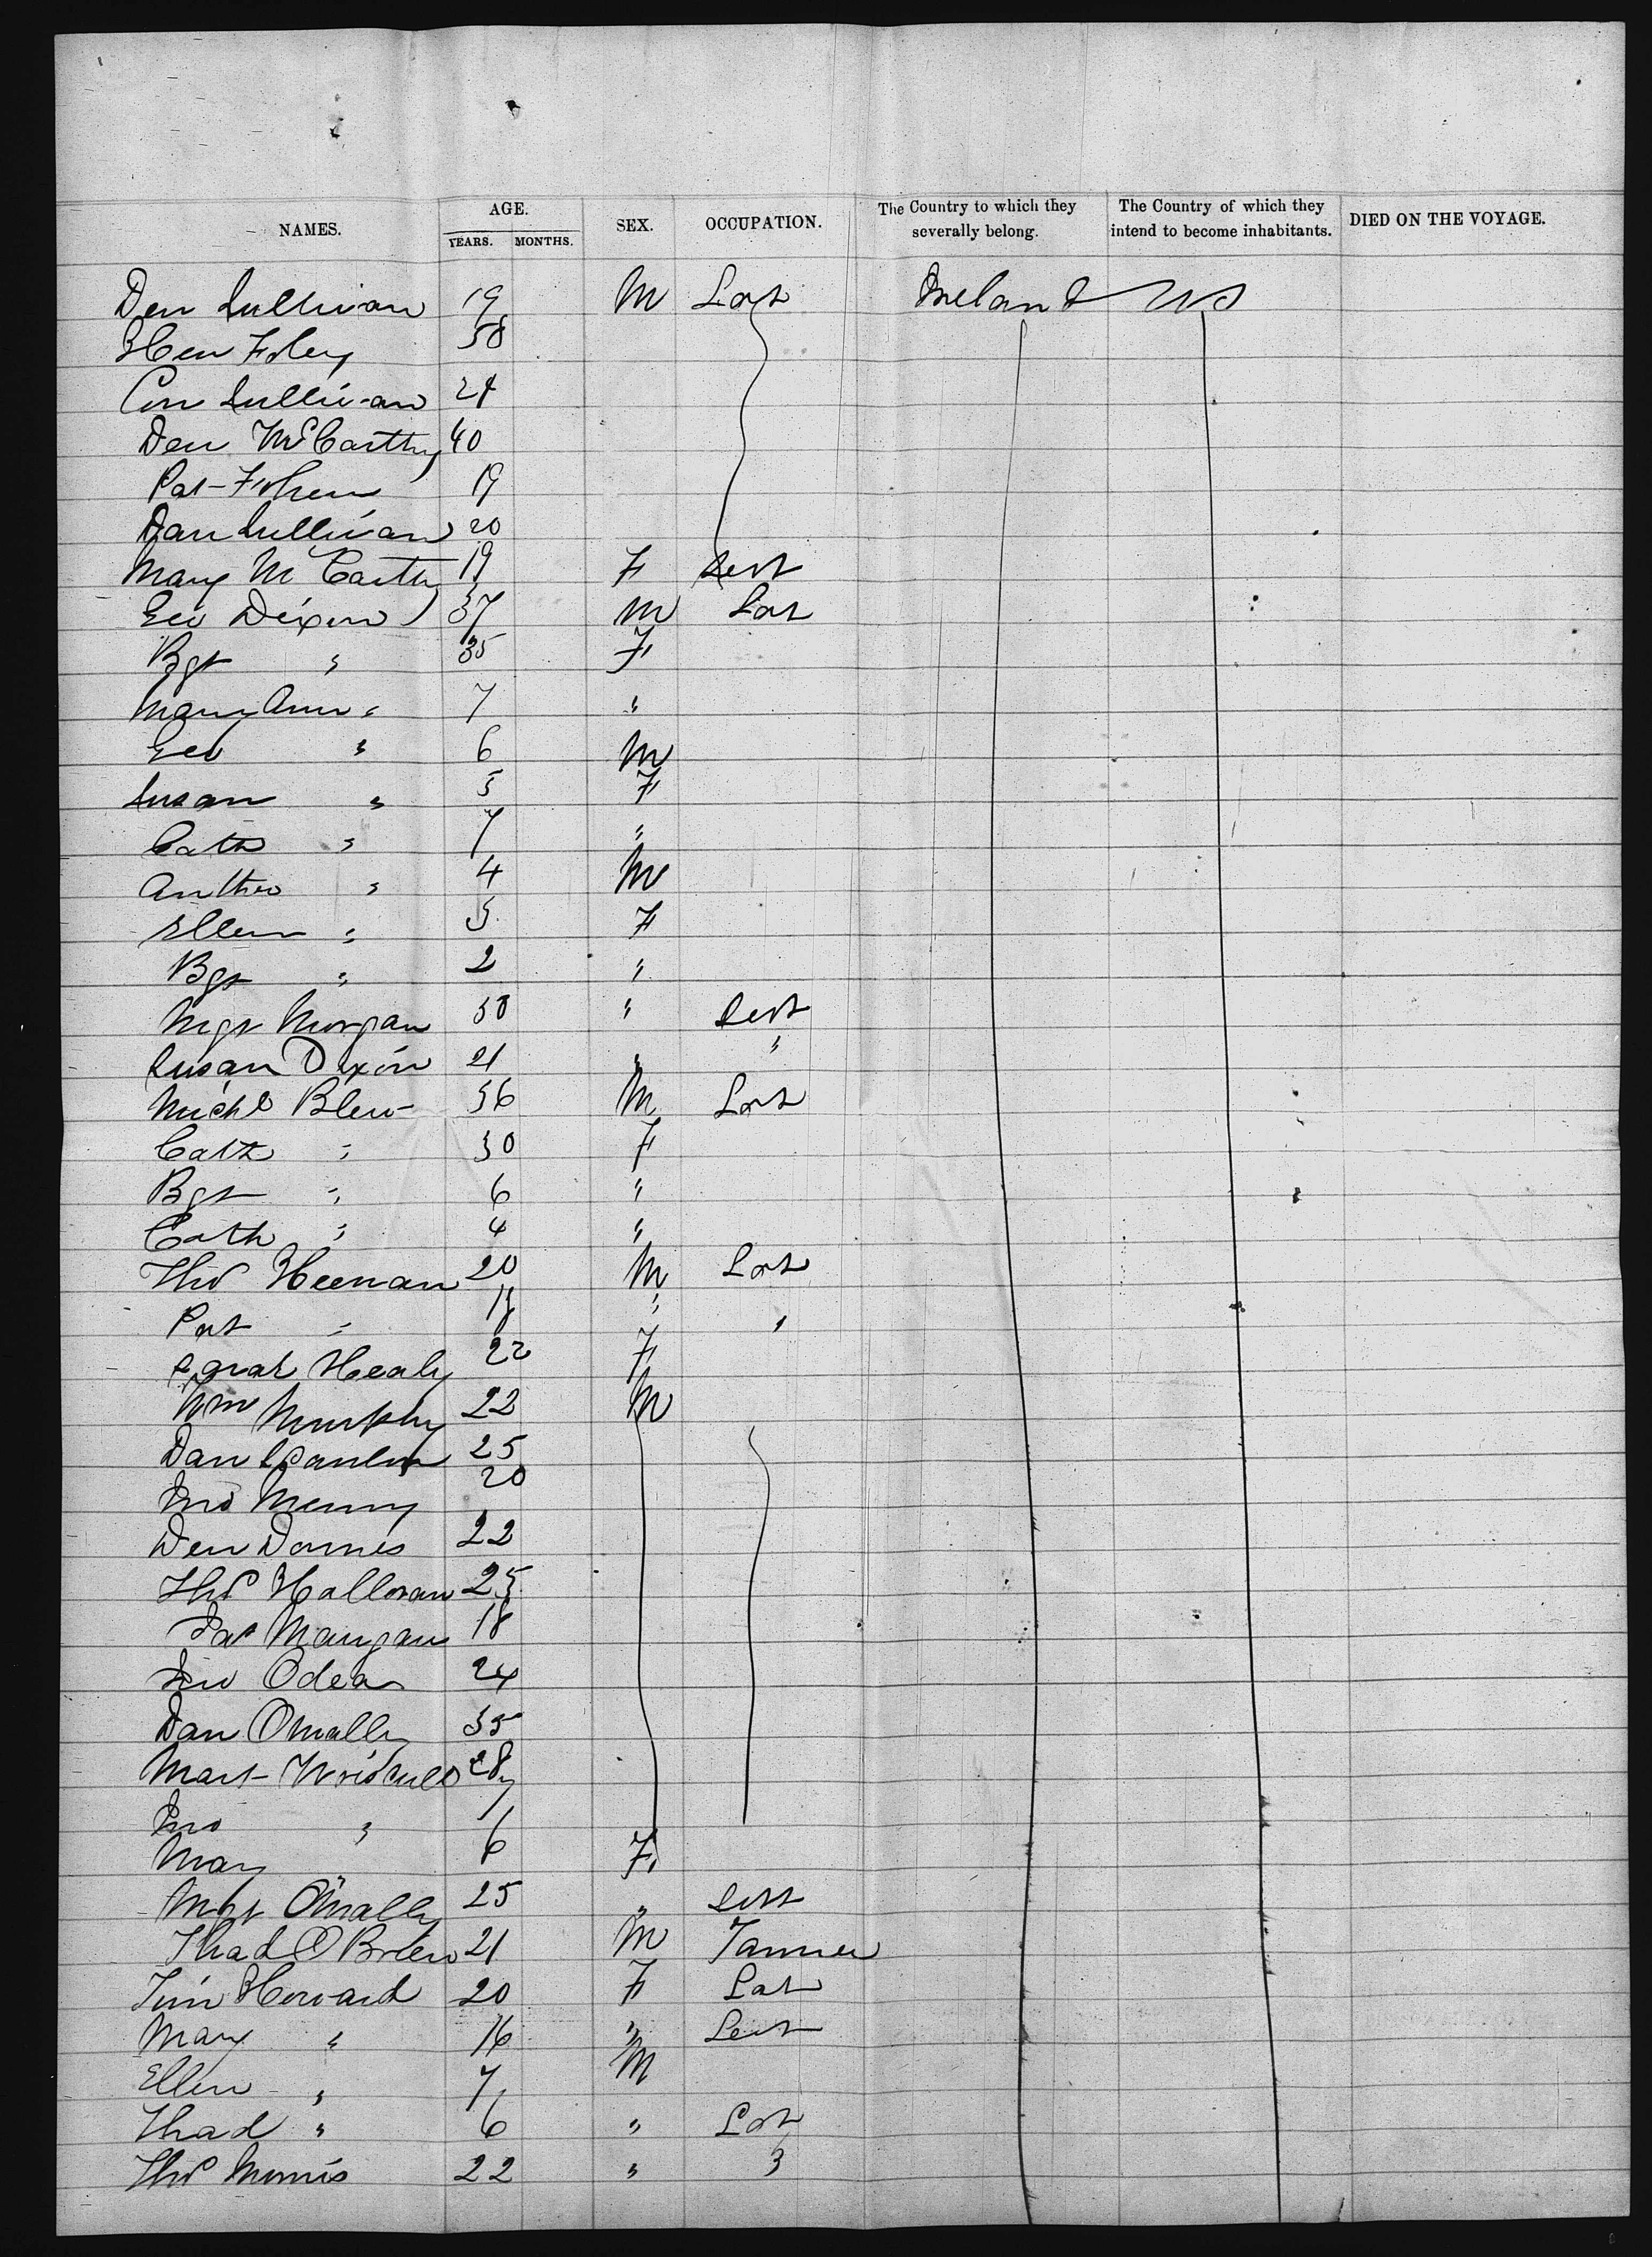 NAMES. AGE. SEX. OCCUPATION. The Country to which they severally belong. The Country of which they intend to become inhabitants. DIED ON THE VOYAGE.
YEARS. MONTHS.
Den Sullivan 19 M Lab Ireland US
Hen Foley
Con Sullivan 24
Den McCarthy 40
Pat 19
Dan Sullivan 20
Mary McCarthy 19 F Servt
Geo Dixon 37 M Lab
Bgt " 35 F
Mary Ann " 7 "
Geo " 6 M
Susan " 5 F
Cath " 7 "
Antho " 4 M
Ellen " 5 F
Bgt " 2 "
Mgt Morgan 30 " Servt
Susan Dixon 21 " "
Michl Blew 36 M Lab
Cath " 30 F
Bgt " 6 "
Cath " 4 "
Thos Heenan 20 M Lab
Pat " 18 " "
Sarah Healy 22 F
Wm Murphy 22 M
Dan Scanlon 25
Jno 20
Den 22
Thos Halloran 25
Pat Mangan 18
Odea 24
Dan OMally 35
Mart 28
Jno " 7
Mary " 6 F
Mgt OMally 25 " Servt
Thad OBrien 21 M Tanner
Tim Howard 20 F Lab
Mary " 16 " Servt
Ellen " 7 M
Thad " 6 " Lab
Thos Morris 22 " "